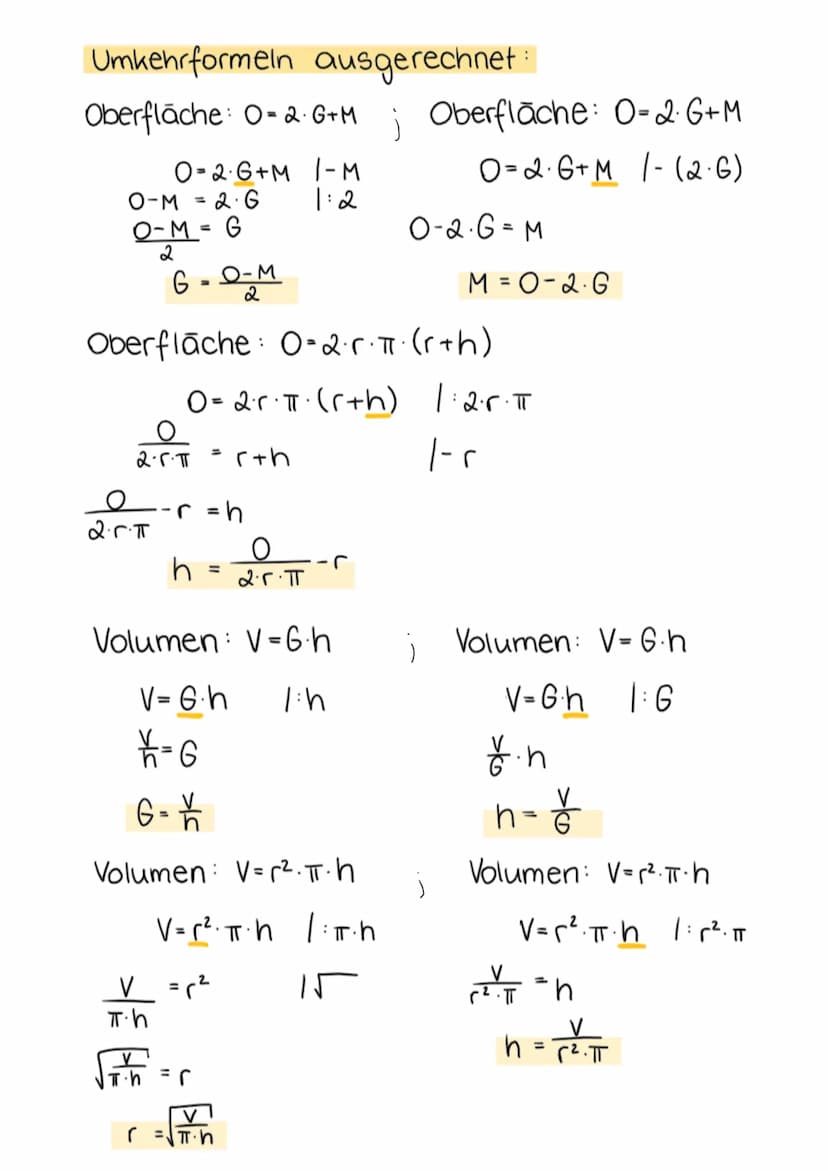 Umkehrformeln ausgerechnet:
Oberfläche: O = 2·G+M ; Oberfläche: O=2·G+M
O=2·G+M |-M
O-M = 2·G |:2
O-M/2 = G
G = O-M/2
O=2·G+M |-(2·G)
O-2·G = M
M = O-2·G
Oberfläche: O=2·r·π·(r+h)
O= 2·r·π·(r+h) |:2·r·π
O/2·r·π = r+h |-r
O/2·r·π -r = h
h = O/2·r·π -r
Volumen: V=G·h ; Volumen: V=G·h
V=G·h |:h
V/h=G
G=V/h
V=G·h |:G
V/G·h
h=V/G
Volumen: V=r²·π·h ; Volumen: V=r²·π·h
V=r²·π·h |:π·h
V/π·h =r² |√
√V/π·h =r
r =√V/π·h
V=r²·π·h |:r²·π
V/r²·π =h
h = V/r²·π